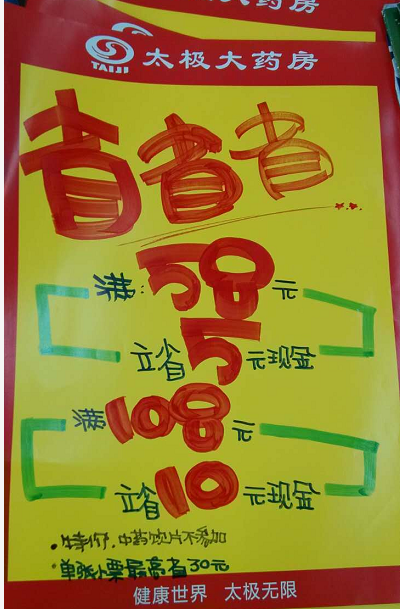 大药房
TAIJI 太极大药房
省省省
满50元
立省5元现金
满100元
立省10元现金
·特价、中药饮片不参加
·单张小票最高省30元
健康世界 太极无限